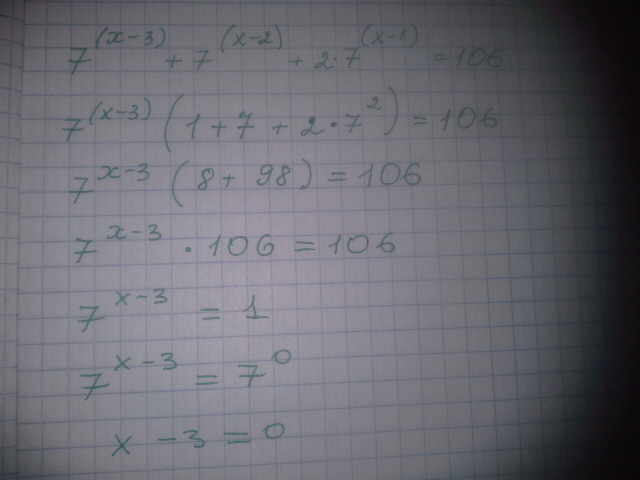 7^(x-3) + 7^(x-2) + 2·7^(x-1) = 106
7^(x-3) (1+7+2·7^2) = 106
7^x-3 (8+98) = 106
7^x-3 · 106 = 106
7^x-3 = 1
7^x-3 = 7^0
x-3=0